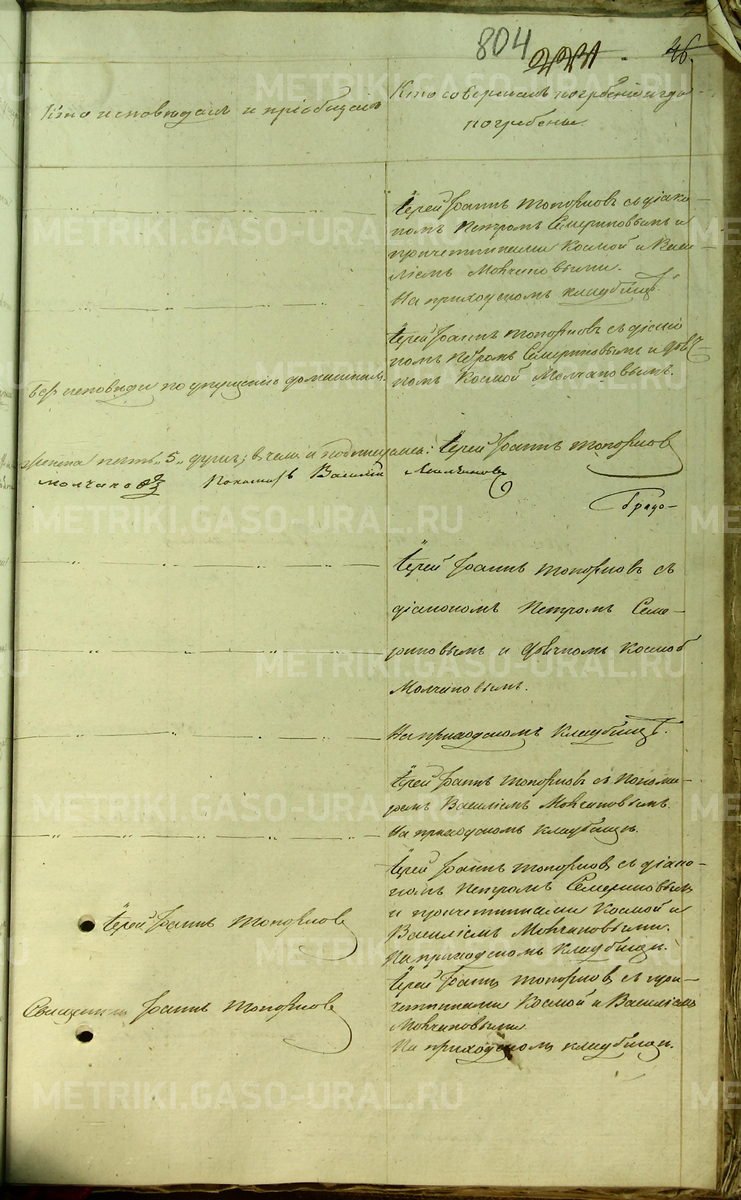 804 46.
Кто исповѣдалъ и пріобщалъ
Кто совершалъ погребеніе и гдѣ
погребены.
Іерей Іоаннъ Топорковъ съ діако-
номъ Петромъ Семериковымъ и
причетниками Космой и Васи-
ліемъ Молчановыми.
На приходскомъ кладбищѣ.
Іерей Іоаннъ Топорковъ съ діако
номъ Петромъ Семериковымъ и
номъ Космой Молчановымъ.
безъ исповѣди по упущенію домашнихъ.
пять „5„ душъ; въ чемъ и подписуемся: Іерей Іоаннъ Топорковъ
Молчановъ Пономарь Василій Молчановъ
Градо-
Іерей Іоаннъ Топорковъ съ
діакономъ Петромъ Семе-
риковымъ и Космой
Молчановымъ.
На приходскомъ кладбищѣ.
Іерей Іоаннъ Топорковъ съ Понома-
ремъ Василіемъ Молчановымъ.
На приходскомъ кладбищѣ.
Іерей Іоаннъ Топорковъ съ діако-
номъ Петромъ Семериковымъ
и причетниками Космой и
Василіемъ Молчановыми.
На приходскомъ кладбищѣ.
Іерей Іоаннъ Топорковъ
Іерей Іоаннъ Топорковъ съ при-
четниками Космой и Василіемъ
Молчановыми
На приходскомъ кладбищѣ.
Священникъ Іоаннъ Топорковъ
METRIKI.GASO-URAL.RU